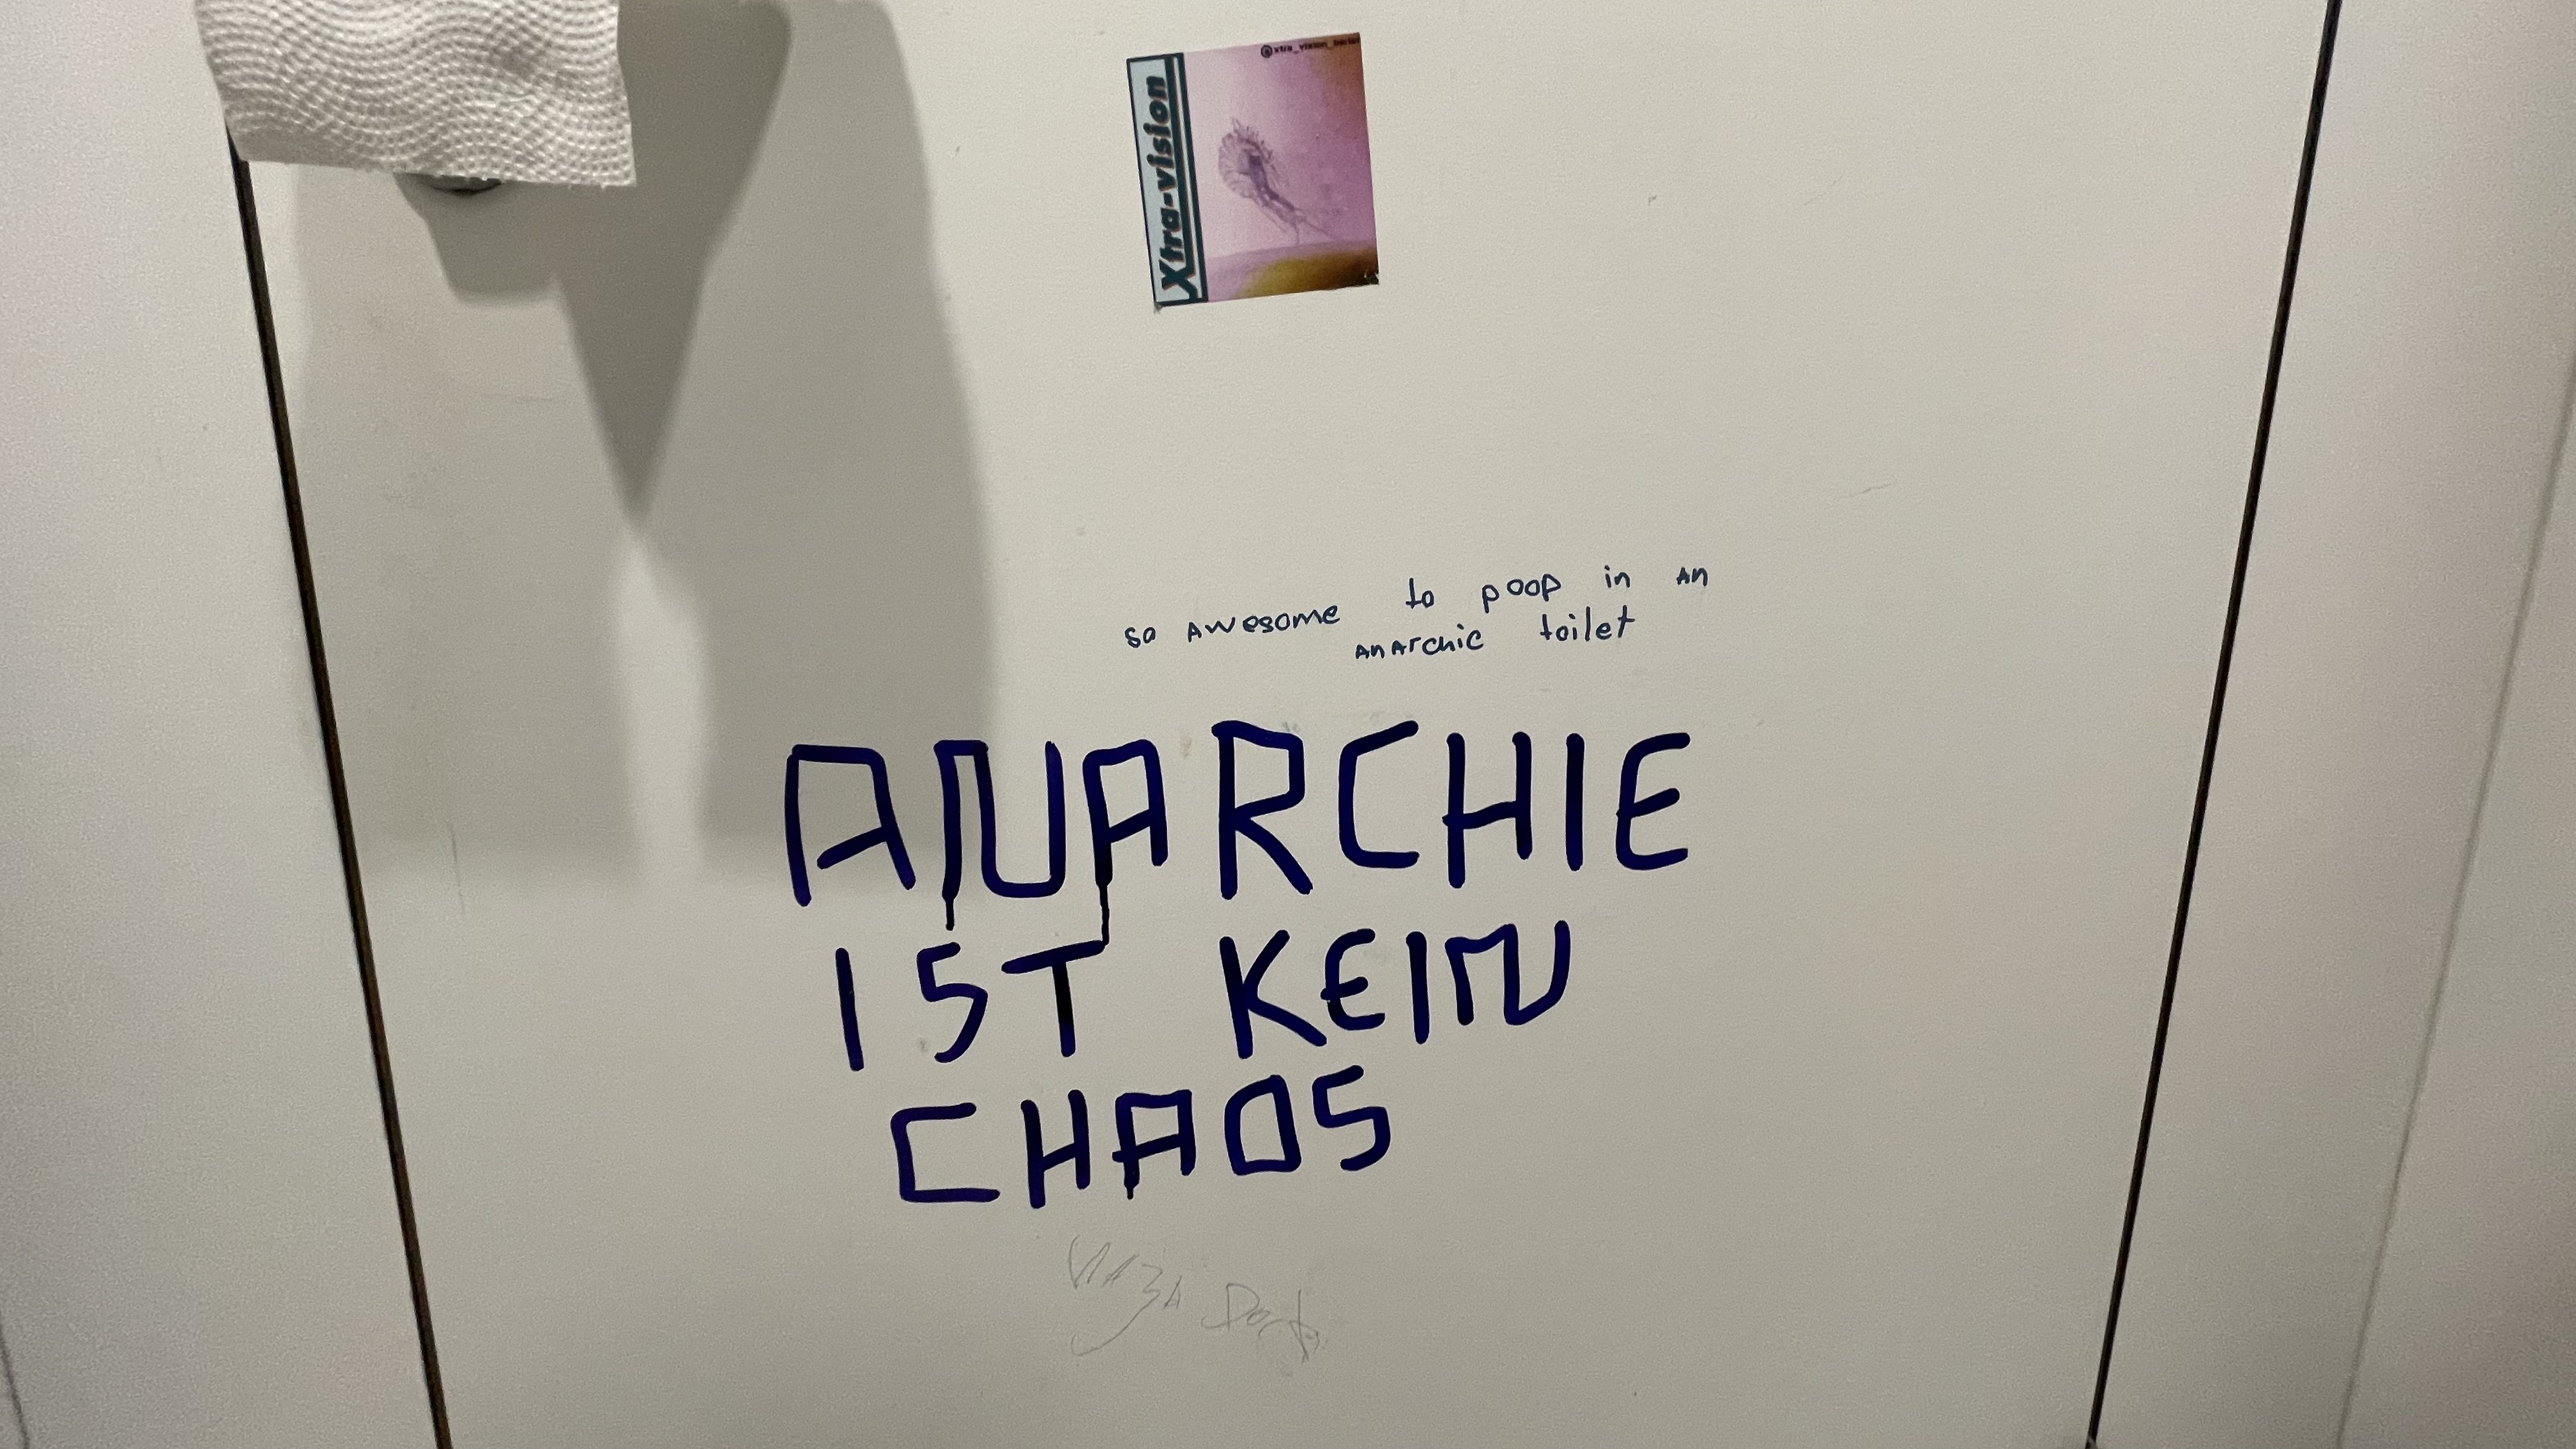 Xtra-vision
so awesome to poop in an
anarchic toilet
ANARCHIE
IST KEIN
CHAOS